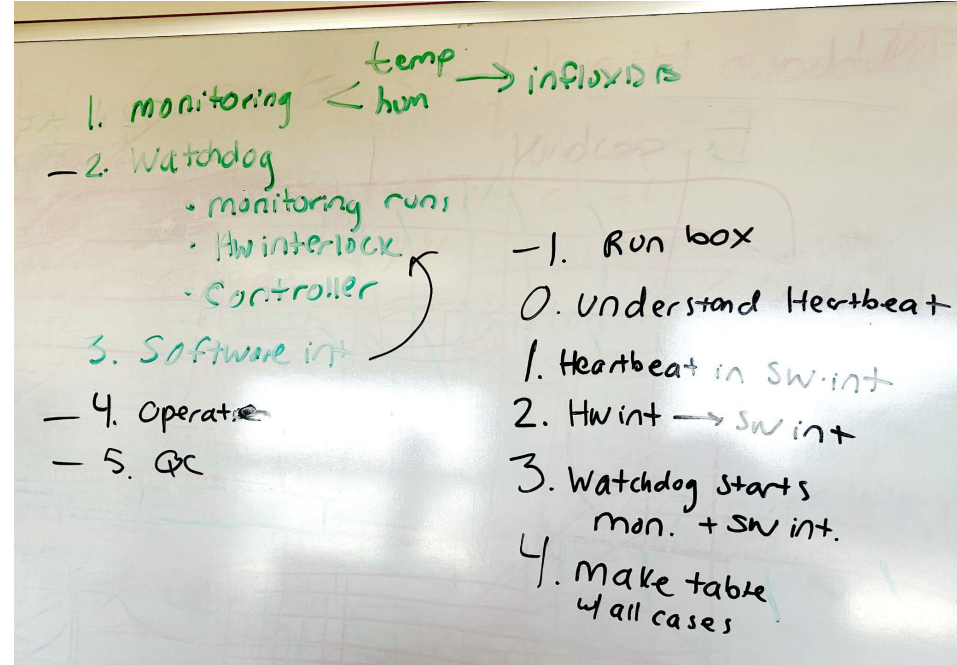 1. monitoring < temp hum → influxDB
– 2. Watchdog
• monitoring runs
• Hw interlock
• Controller
3. Software int
– 4. Operate
– 5. QC
–1. Run box
0. Understand Heartbeat
1. Heartbeat in SW int
2. HW int → SW int
3. Watchdog starts
mon. + SW int.
4. Make table
w/ all cases